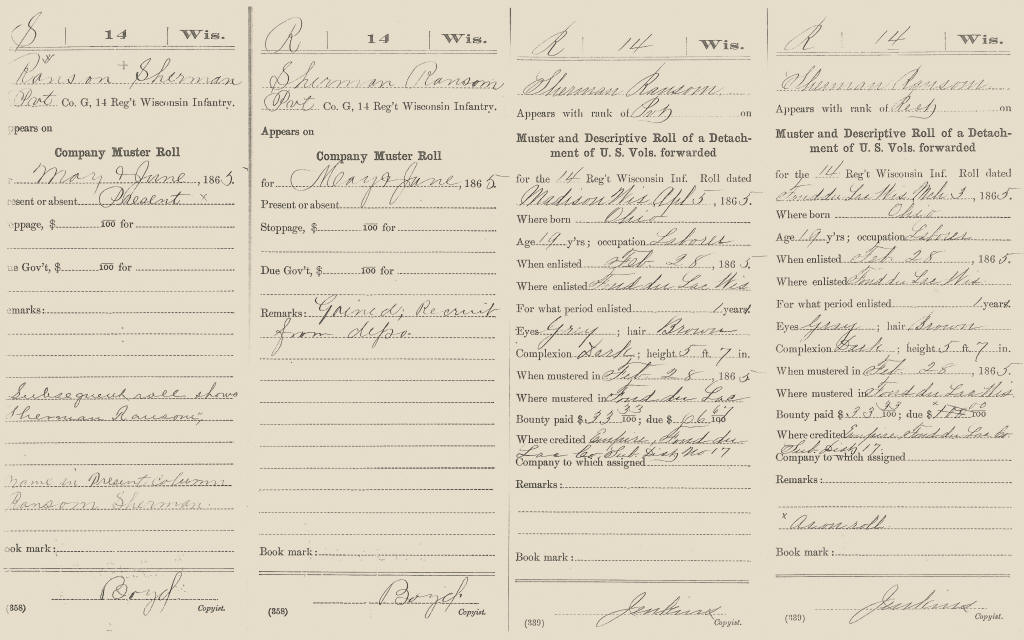 S | 14 | Wis.
Ranson + Sherman
Pvt Co. G, 14 Reg't Wisconsin Infantry.
ppears on
Company Muster Roll
r May & June, 1865.
esent or absent Present x
oppage, $ 100 for
ue Gov't, $ 100 for
emarks:
Subsequent roll shows
Sherman Ransom,
Name in Present column
Ransom Sherman.
ook mark:
Boyd
(358) Copyist.
R | 14 | Wis.
Sherman Ransom
Pvt. Co. G, 14 Reg't Wisconsin Infantry.
Appears on
Company Muster Roll
for May & June, 1865.
Present or absent
Stoppage, $ 100 for
Due Gov't, $ 100 for
Remarks: Gained; Recruit
from depo.
Book mark:
Boyd
(358) Copyist.
R | 14 | Wis.
Sherman Ransom
Appears with rank of Pvt on
Muster and Descriptive Roll of a Detach-
ment of U. S. Vols. forwarded
for the 14 Reg't Wisconsin Inf. Roll dated
Madison Wis Apl 5, 1865.
Where born Ohio
Age 19 y'rs; occupation Laborer
When enlisted Feb. 28, 1865.
Where enlisted Fond du Lac Wis
For what period enlisted 1 years.
Eyes Gray; hair Brown
Complexion Dark; height 5 ft. 7 in.
When mustered in Feb. 28, 1865
Where mustered in Fond du Lac
Bounty paid $ 33 33/100; due $ 66 67/100
Where credited Empire, Fond du
Lac Co. Sub. Dist No 17
Company to which assigned
Remarks:
Book mark:
Jenkins
(339) Copyist.
R | 14 | Wis.
Sherman Ransom
Appears with rank of Rect on
Muster and Descriptive Roll of a Detach-
ment of U. S. Vols. forwarded
for the 14 Reg't Wisconsin Inf. Roll dated
Fond du Lac Wis Mch 3, 1865.
Where born Ohio
Age 19 y'rs; occupation Laborer
When enlisted Feb. 28, 1865.
Where enlisted Fond du Lac Wis
For what period enlisted 1 years.
Eyes Gray; hair Brown
Complexion Dark; height 5 ft. 7 in.
When mustered in Feb. 28, 1865.
Where mustered in Fond du Lac Wis
Bounty paid $ 33 33/100; due $ x 100 00/100
Where credited Empire Fond du Lac Co.
Sub. Dist 17.
Company to which assigned
Remarks:
x As on roll
Book mark:
Jenkins
(339) Copyist.